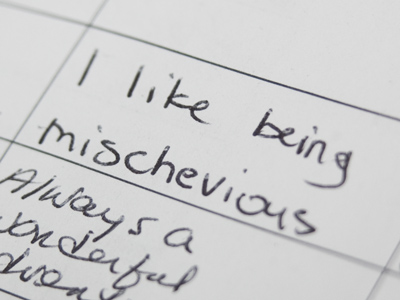 I like being
mischevious
Always a
wonderful